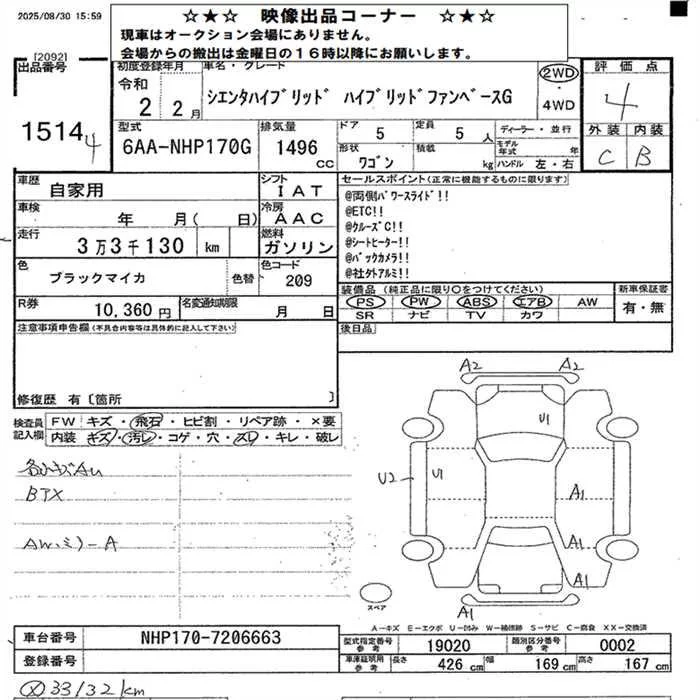 2025/08/30 15:59
☆★☆ 映像出品コーナー ☆★☆
現車はオークション会場にありません。
会場からの搬出は金曜日の１６時以降にお願いします。
[2092]
出品番号
1514
4
初度登録年月
令和
2 2月
車名・グレード
シエンタハイブリッド ハイブリッドファンベースG
2WD
・
4WD
評価点
4
外装 内装
C B
型式
6AA-NHP170G
排気量
1496 cc
ドア 5
定員 5 人
形状 ワゴン
積載 kg
ディーラー・並行
モデル年式 年
ハンドル 左・右
車歴
自家用
シフト
IAT
車検
年 月( 日)
冷房
AAC
走行
3万3千130 km
燃料
ガソリン
色
ブラックマイカ
色替
色コード
209
R券
10,360円
名変通知期限
月 日
セールスポイント(正常に機能するものに限ります)
@両側パワースライド!!
@ETC!!
@クルーズC!!
@シートヒーター!!
@バックカメラ!!
@社外アルミ!!
装備品(純正品に限り○をつけてください)
PS PW ABS エアB AW
SR ナビ TV カワ
新車保証書
有・無
後日品
注意事項申告欄(不具合内容等は具体的に記入して下さい)
修復歴 有〔箇所 〕
検査員
記入欄
FW キズ・飛石・ヒビ割・リペア跡・×要
内装 キズ・汚レ・コゲ・穴・スレ・キレ・破レ
各小キズAU
BTX
AW.ミラーA
A2
A2
U1
U2
U1
A1
A1
A1
A1
スペア
A-キズ E-エクボ U-凹み W-補修跡 S-サビ C-腐食 XX-交換済
車台番号
NHP170-7206663
登録番号
型式指定番号
参考
19020
類別区分番号
参考
0002
車庫証明用
参考
長さ 426 cm
幅 169 cm
高さ 167 cm
33132km